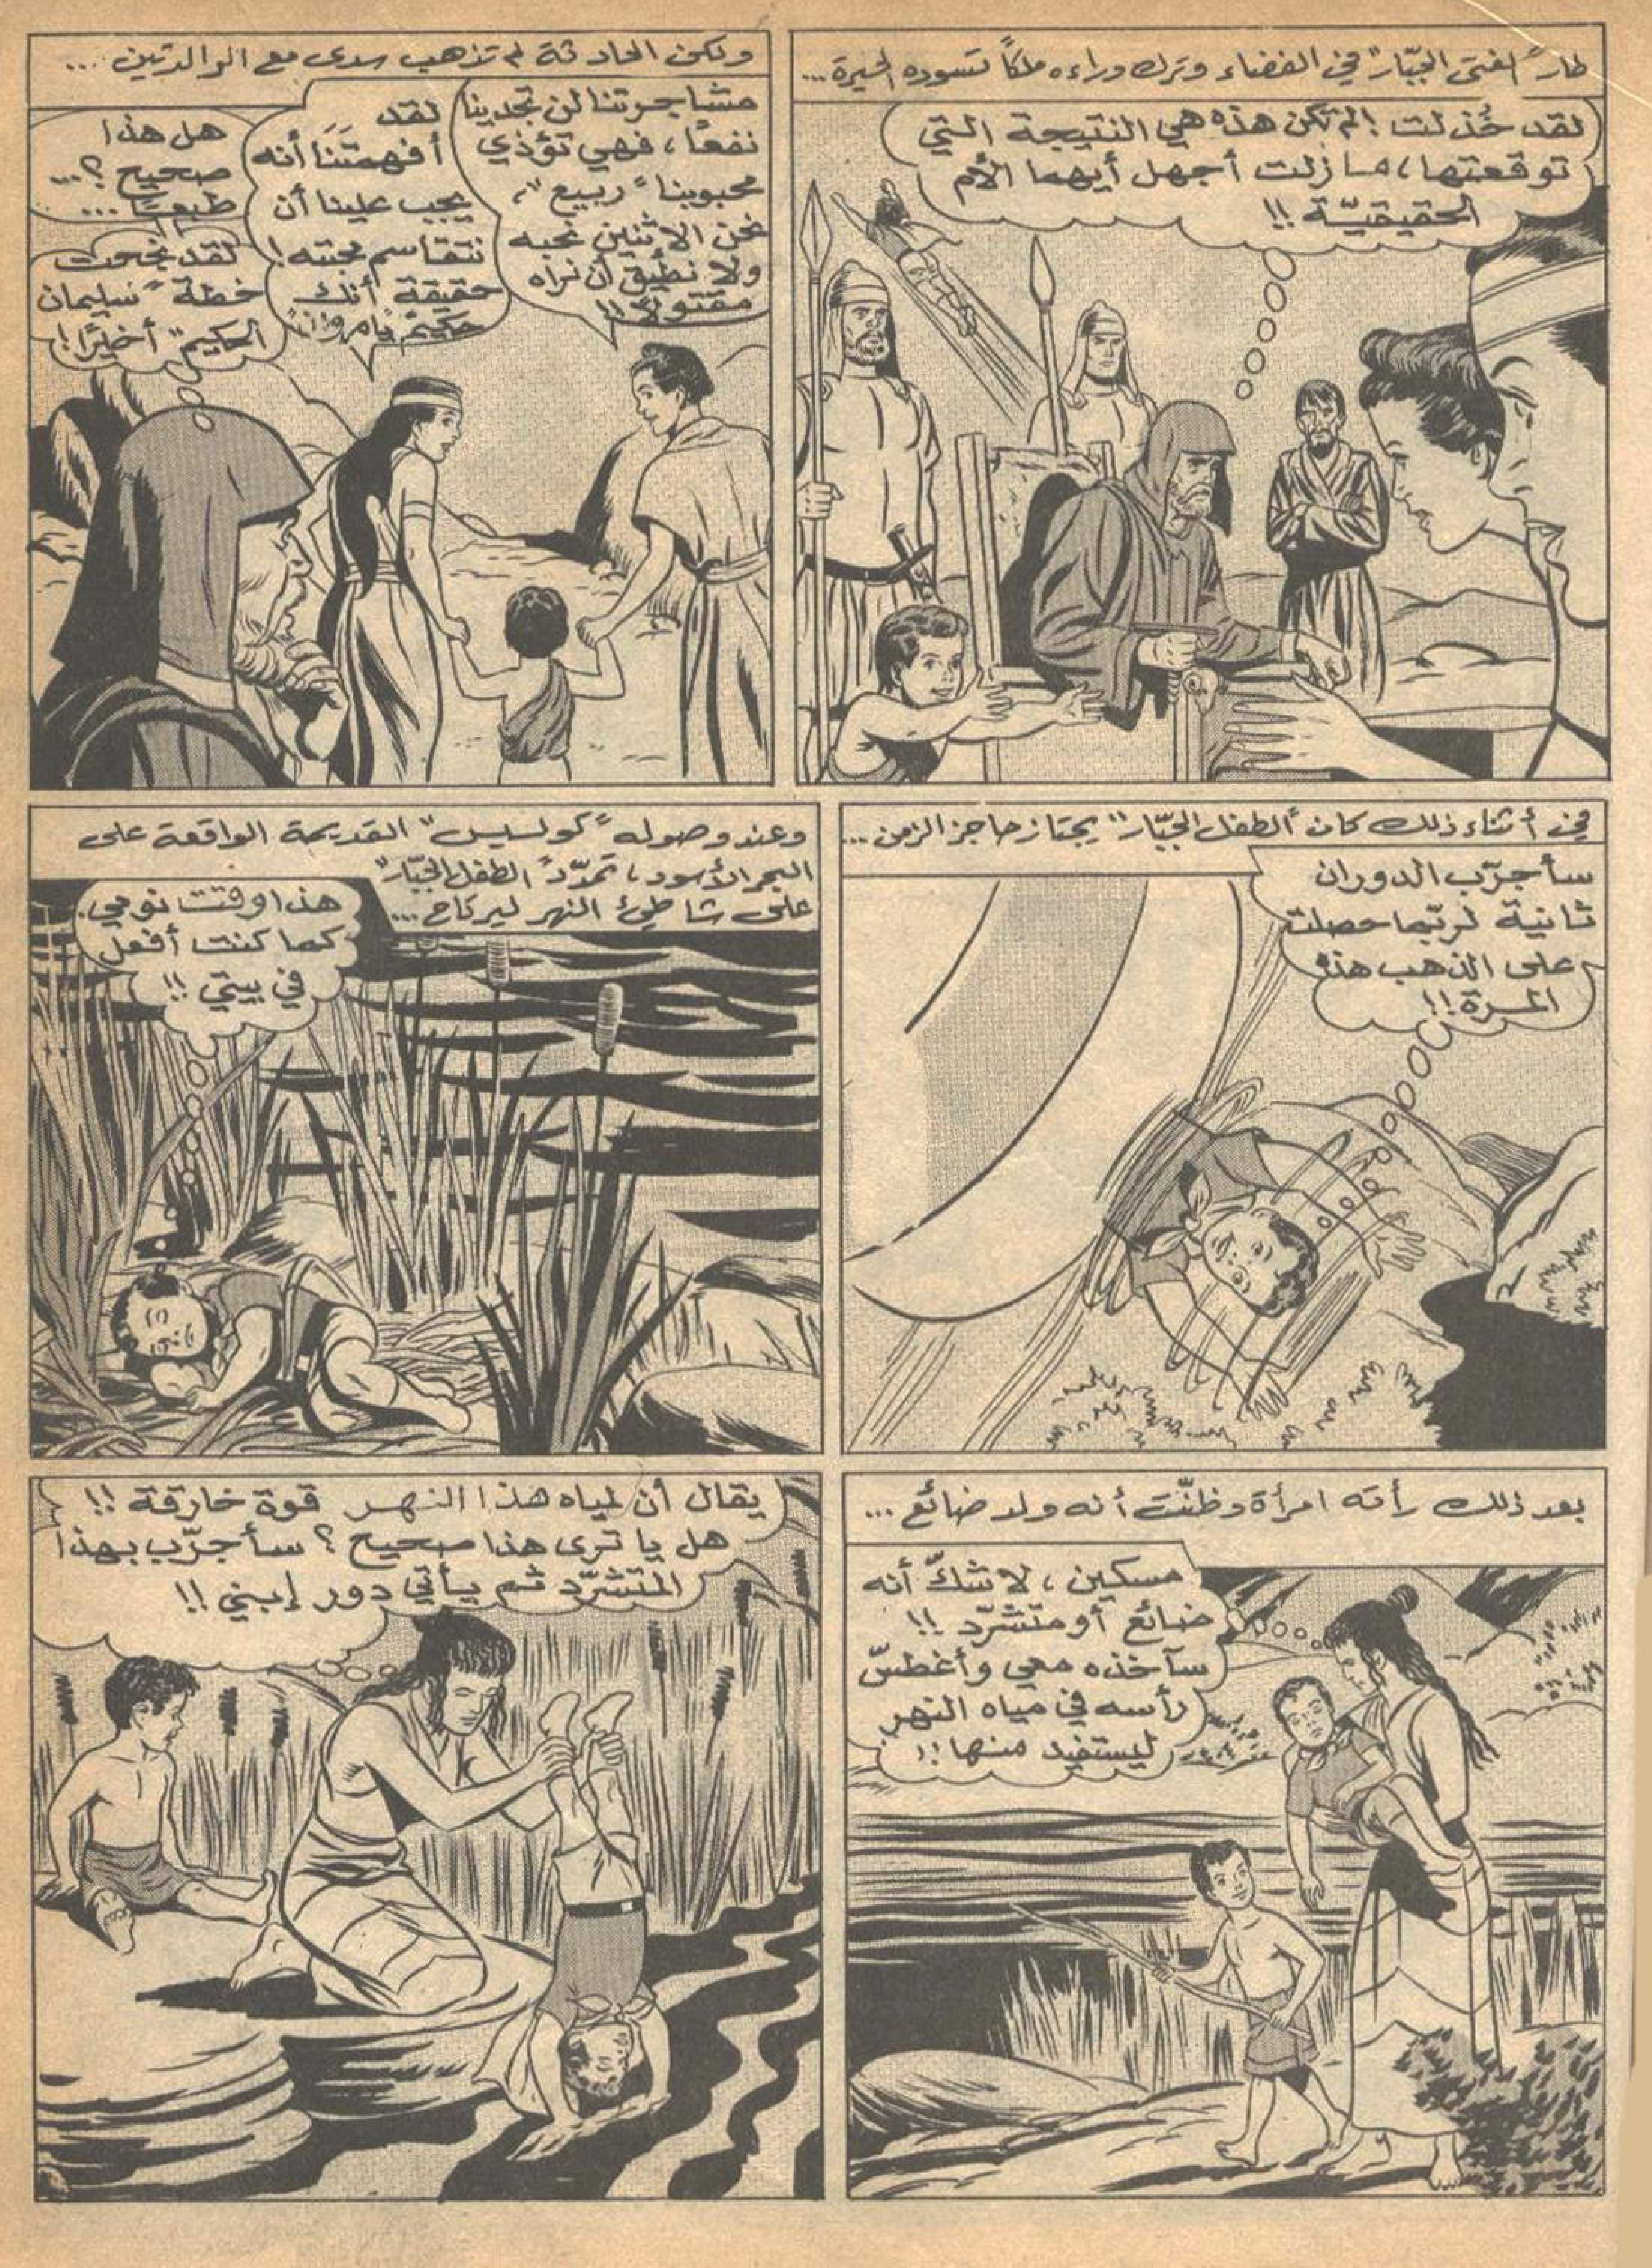 طار "الفتى الجبّار" في الفضاء وترك وراءه ملكاً تسوده الحيرة...
لقد خُذلت! لم تكن هذه هي النتيجة التي
توقعتها، مازلت أجهل أيهما الأم
الحقيقيّة !!
ولكن الحادثة لم تذهب سدى مع الوالدتين ...
مشاجرتنا لن تجدينا
نفعاً، فهي تؤذي
محبوبنا "ربيع"،
نحن الاثنين نحبه
ولا نطيق أن نراه
مقتولاً !!
لقد
أفهمتَنَا أنه
يجب علينا أن
نتقاسم محبته!
حقيقة أنك
حكيمٌ يا
هل هذا
صحيح؟...
طبعاً ...
لقد نجحت
خطة "سليمان
الحكيم" أخيراً!
في أثناء ذلك كان "الطفل الجبّار" يجتاز حاجز الزمن...
سأجرّب الدوران
ثانية لربّما حصلت
على الذهب هذه
المرة!!
وعند وصوله "كولسيس" القديمة الواقعة على
البحر الأسود، تمدّد "الطفل الجبّار"
على شاطئ النهر ليرتاح ...
هذا وقت نومي.
كما كنت أفعل
في بيتي !!
بعد ذلك رأته امرأة وظنّت أنه ولد ضائع ...
مسكين، لا شكّ أنه
ضائع أو متشرّد !!
سآخذه معي وأغطسّ
رأسه في مياه النهر
ليستفيد منها !!
يقال أن لمياه هذا النهر قوة خارقة !!
هل يا ترى هذا صحيح ؟ سأجرّب بهذا
المتشرّد ثم يأتي دور إبني !!